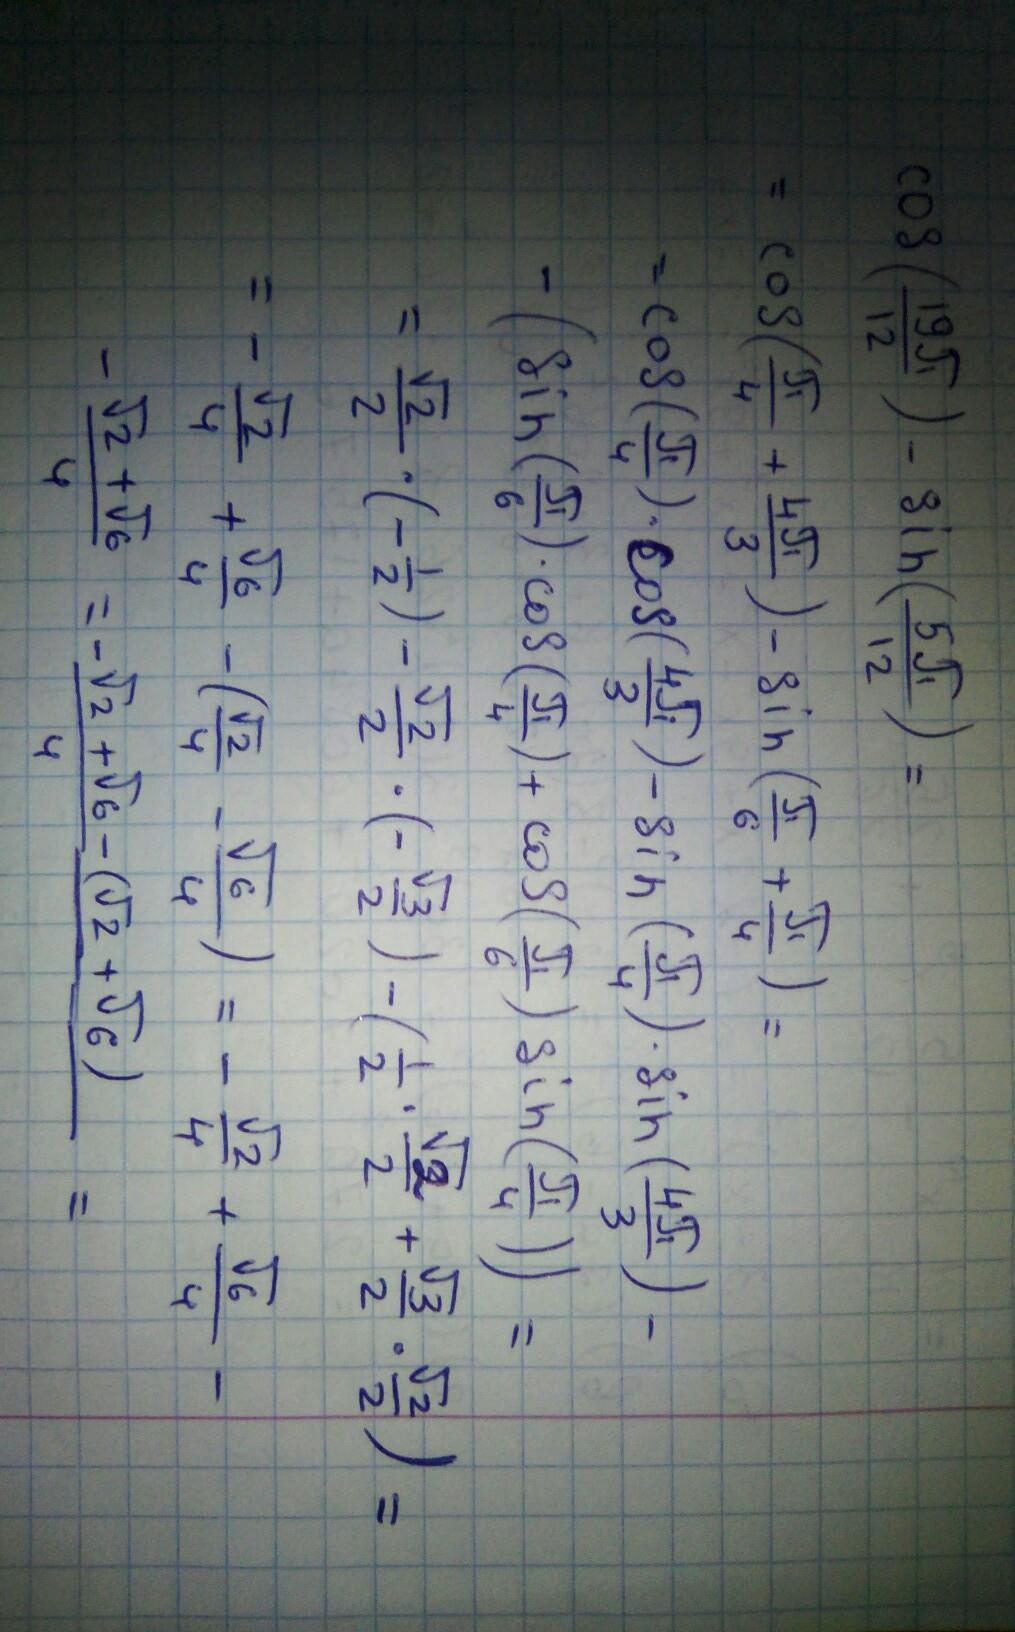 cos(19π/12) - sin(5π/12) =
= cos(π/4 + 4π/3) - sin(π/6 + π/4) =
= cos(π/4)·cos(4π/3) - sin(π/4)·sin(4π/3) -
- (sin(π/6)·cos(π/4) + cos(π/6) sin(π/4)) =
= √2/2·(-1/2) - √2/2·(-√3/2) - (1/2·√2/2 + √3/2·√2/2) =
= - √2/4 + √6/4 - (√2/4 - √6/4) = - √2/4 + √6/4 -
- (√2 + √6)/4 = (-√2 + √6 - (√2 + √6))/4 =